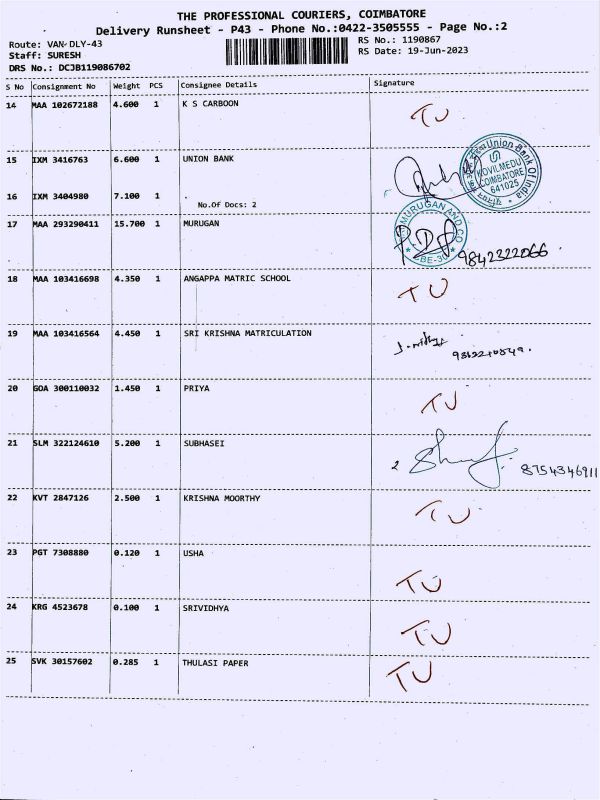 THE PROFESSIONAL COURIERS, COIMBATORE
Delivery Runsheet - P43 - Phone No.:0422-3505555 - Page No.:2
Route: VAN-DLY-43 RS No.: 1190867
Staff: SURESH RS Date: 19-Jun-2023
DRS No.: DCJB119086702
S No Consignment No Weight PCS Consignee Details Signature
14 MAA 102672188 4.600 1 K S CARBOON TU
15 IXM 3416763 6.600 1 UNION BANK
Union Bank Of India
KOVILMEDU
COIMBATORE
641025
16 IXM 3404980 7.100 1
No.Of Docs: 2
17 MAA 293290411 15.700 1 MURUGAN
MURUGAN AND CO
CBE-30
9842322066
18 MAA 103416698 4.350 1 ANGAPPA MATRIC SCHOOL TU
19 MAA 103416564 4.450 1 SRI KRISHNA MATRICULATION
20 GOA 300110032 1.450 1 PRIYA TU
21 SLM 322124610 5.200 1 SUBHASEI 8754346911
22 KVT 2847126 2.500 1 KRISHNA MOORTHY TU
23 PGT 7308880 0.120 1 USHA TU
24 KRG 4523678 0.100 1 SRIVIDHYA TU
25 SVK 30157602 0.285 1 THULASI PAPER TU